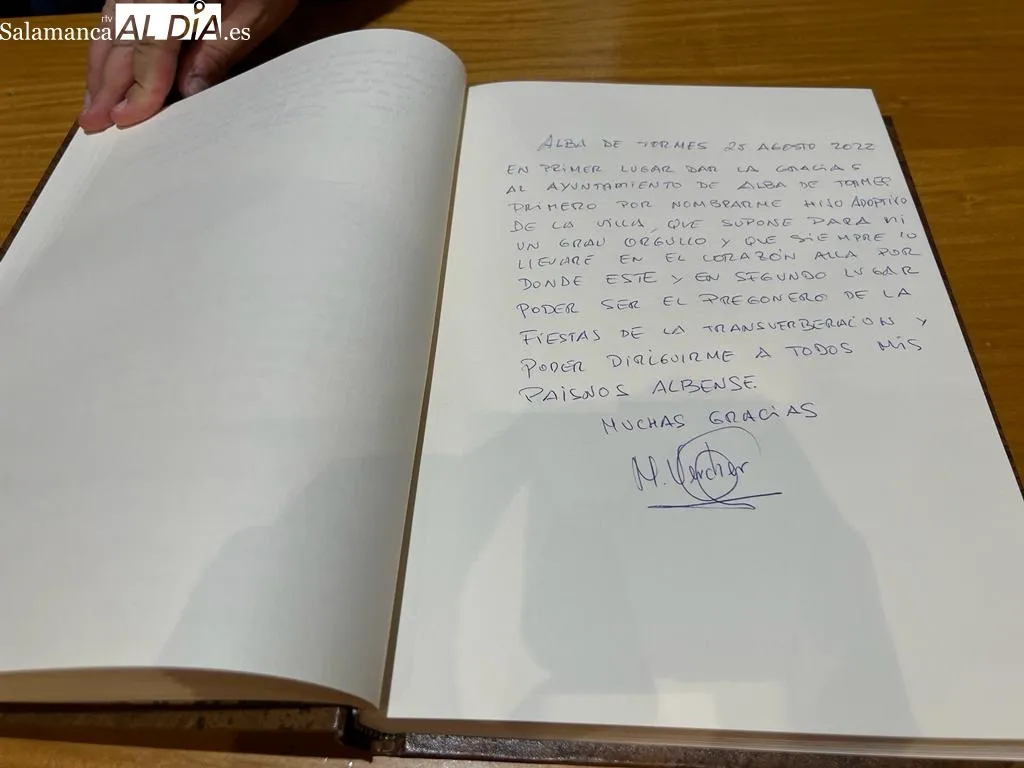 Salamanca rtv AL DÍA.es
ALBA DE TORMES 25 AGOSTO 2022
EN PRIMER LUGAR DAR LA GRACIAS
AL AYUNTAMIENTO DE ALBA DE TORMES
PRIMERO POR NOMBRARME HIJO ADOPTIVO
DE LA VILLA, QUE SUPONE PARA MI
UN GRAN ORGULLO Y QUE SIEMPRE LO
LLEVARE EN EL CORAZÓN ALLA POR
DONDE ESTE Y EN SEGUNDO LUGAR
PODER SER EL PREGONERO DE LA
FIESTAS DE LA TRANSVERBERACION Y
PODER DIRIGUIRME A TODOS MIS
PAISNOS ALBENSE.
MUCHAS GRACIAS
M.